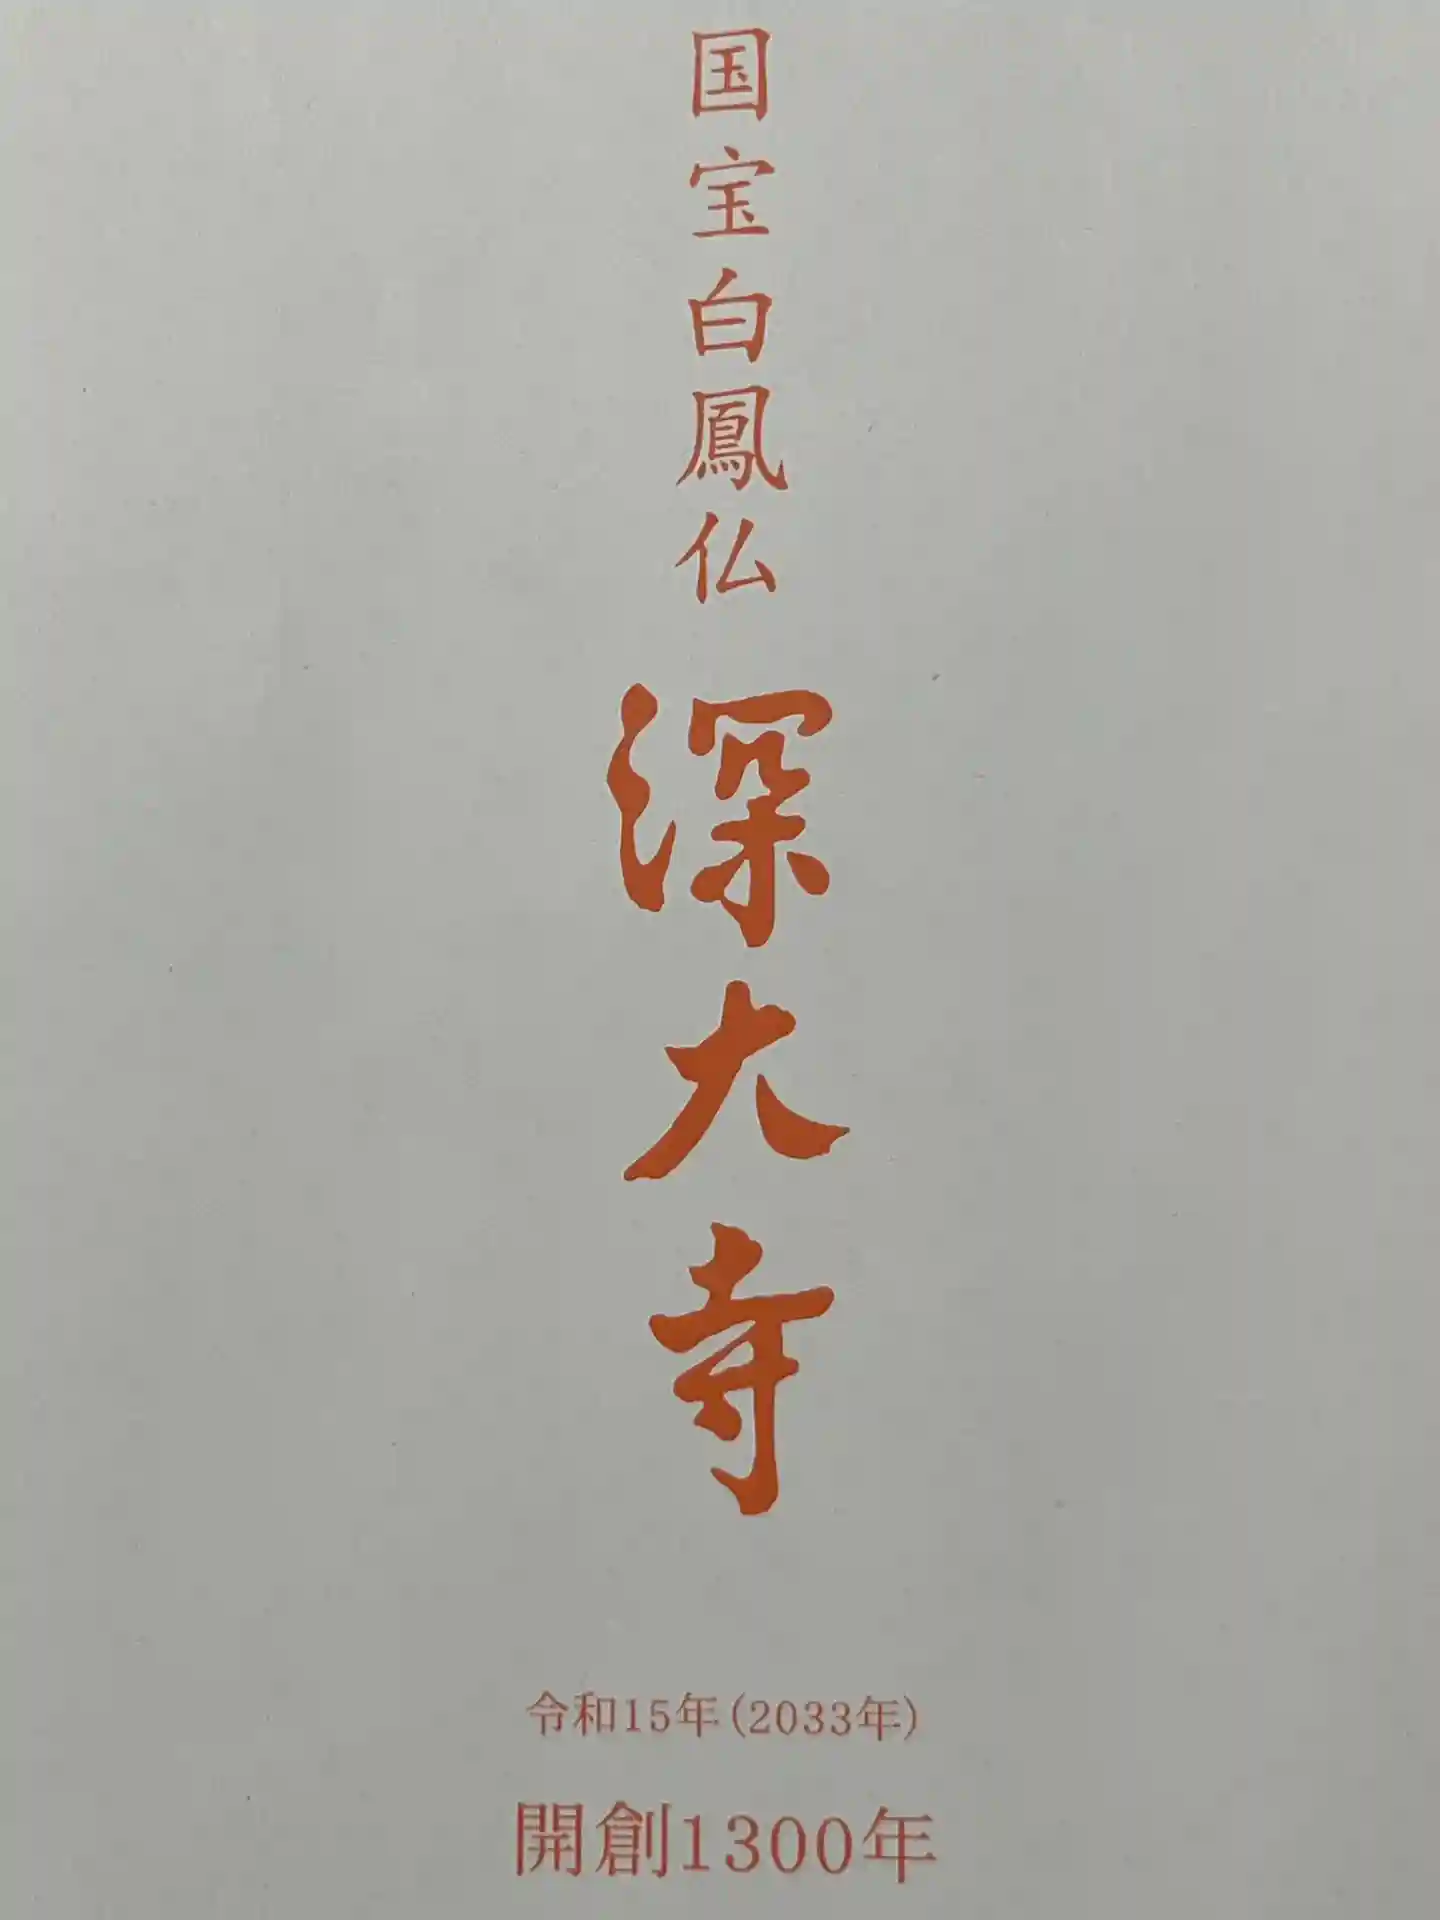 国宝白鳳仏
深大寺
令和15年(2033年)
開創1300年